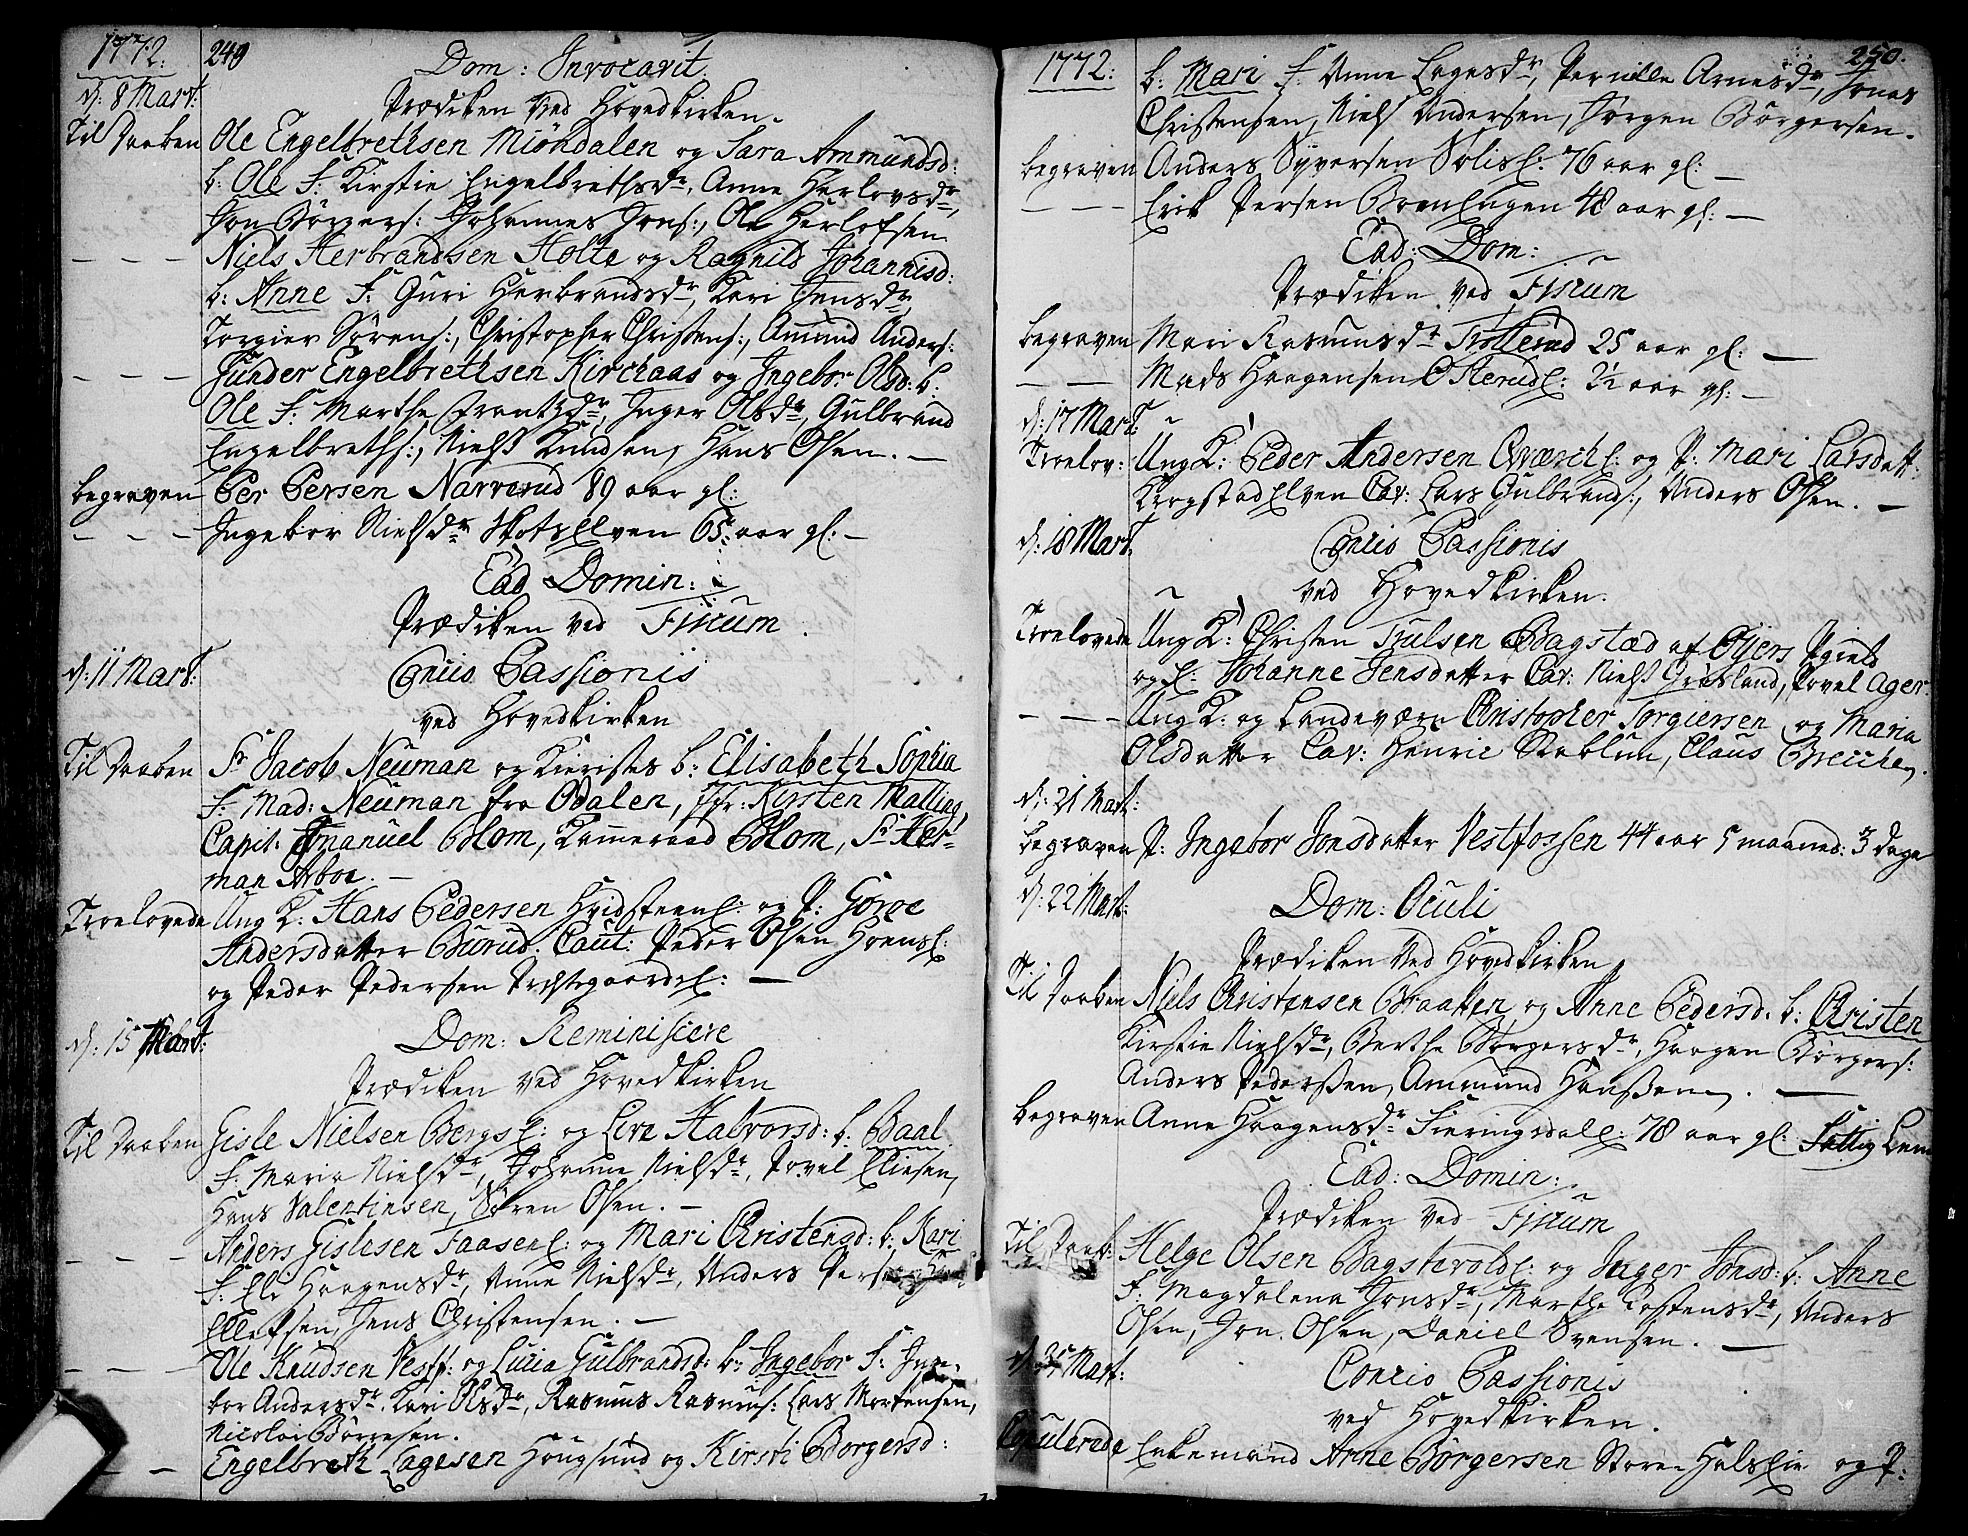 1772. 249 Dom: Invocavit.
d: 8 Mart: Prædiken ved Hovedkirken.
Til Daaben Ole Engelbrethsen Miöndalen og Sara Ammundsd:
b: Ole F: Kirstie Engelbrethsdr, Anne Herlovsdr,
Jon Börgers: Johannes Jons:, Ole Herlofsen
— — — Niels Herbrandsen Holte og Ragnild Johannisd:
b: Anne F: Guri Herbrandsdr, Kari Jensdr,
Torgier Sörens:, Christopher Christens:, Amund Anders:
— — — Gunder Engelbrethsen Kirchaas og Ingebr. Olsd: b:
Ole F: Marthe Frantzdr, Inger Olsdr, Gulbrand
Engelbreths:, Niels Knudsen, Hans Olsen. —
begraven Per Persen Narverud 89 aar gl:
— — — Ingebor Nielsdr SkotsElven 65 aar gl: —
Ead Domin:
Prædiken ved Fiscum.
d: 11 Mart: Concio Passionis
ved Hovedkirken
Til Daaben Sr Jacob Neuman og Kieristes b: Elisabeth Sophia
F: Mad: Neuman fra Odalen, Jfr: Kirsten Malling,
Capit: Emanuel Blom, Kammeraad Blom, Sr Her=
man Arboe. —
Troelovede Ung K: Hans Pedersen HvidsteenE: og P: Goroe
Andersdatter Burud. Caut: Peder Olsen HoensE:
og Peder Pedersen PrestegaardsE: —
d: 15 Mart: Dom: Reminiscere
Prædiken ved Hovedkirken
Til Daaben Gisle Nielsen BergsE: og Live Halvorsd: b: Paal
F: Maria Nielsdr, Johanne Nielsdr, Povel Eliesen,
Hans Valentinsen, Sören Olsen. —
— — Anders Gislesen FaasenE: og Mari Christensd: b: Kari
F: Eli Haagensdr, Anne Nielsdr, Anders Pers
Ellefsen, Jens Christensen. —
— — — Ole Knudsen Vestf: og Lucia Gulbrandsd: b: Ingebor F: Inge=
bor Andersdr, Kari Olsdr, Rasmus Rasmus: Lars Mortensen,
Nicolai Börresen.
— — Engelbreth Lagesen Hougsund og Kirsti Borgersd:
1772. 250.
b: Mari F: Anne Lagesdr, Pernille Arnesdr, Jonas
Christensen, Niels Andersen, Jörgen Börgersen.
begraven Anders Syversen SolisE: 76 aar gl: —
— — — Erik Persen BrenEngen 48 aar gl: —
Ead: Dom:
Prædiken ved Fiscum
begraven Mari Rasmusdr Trollerud 25 aar gl: —
— — Mads Haagensen OllerudE: 2½ aar gl: —
d: 17 Mart:
Troelov: Ung K: Peder Andersen QværchE: og P: Mari Larsdatt:
KrogstadElven Cav: Lars Gulbrands:, Anders Olsen. —
d: 18 Mart: Concio Passionis
ved Hovedkirken.
Troelovede Ung K: Christen Trulsen Bagstæd af Eyers Pgield
og E: Johanne Jensdatter Cav: Niels Grösland, Povel Ager
— — — Ung K: og Landeværn Christopher Torgiersen og Maria
Olsdatter Cav: Henric Stablum, Claus Becchen.
d: 21 Mart:
begraven P: Ingebor Jonsdatter Vestfossen 44 aar 5 maaned: 3 dage
d: 22 Mart: Dom: Oculi
Prædiken ved Hovedkirken
Til Daaben Niels Christensen Braatten og Anne Pedersd. b: Christen
Kirstie Nielsdr, Berthe Borgersdr, Haagen Börgers:
Anders Pederßen, Ammund Hanßen. —
begraven Anne Haagensdr FieringsdalE: 78 aar gl: Fattig Lem
Ead: Domin:
Prædiken ved Fiscum
Til Daab: Helge Olsen BagstevoldE: og Inger Jonsd: b: Anne
F: Magdalena Jonsdr, Marthe Torstensdr, Anders
Olsen, Jon Olsen, Daniel Svensen. —
d. 25 Mart: Concio Passionis
ved Hovedkirken.
Copulerede Enkemand Arne Börgersen Store HalsEie og P: